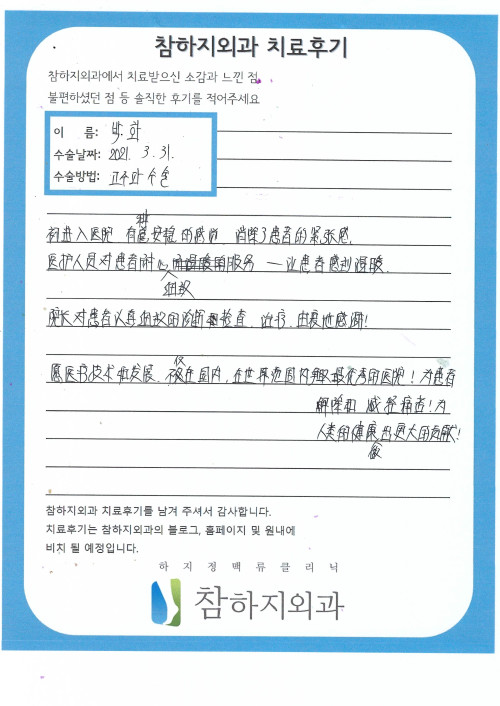 참하지외과 치료후기
참하지외과에서 치료받으신 소감과 느낀 점,
불편하셨던 점 등 솔직한 후기를 적어주세요
이 름: 박 화
수술날짜: 2021. 3. 31.
수술방법: 고주파 수술
种
初进入医院 有 安稳 的感觉. 消除了患者的紧张感.
医护人员对患者耐心 服务 一 让患者感到温暖.
细致
院长对患者认真细致的诊断 检查. 治疗. 由衷地感谢!
仅
愿医疗技术 发展. 不 在国内, 在世界范围内 最优秀的医院! 为患者
解除和 减轻痛苦! 为
人类的健康 出更大的贡献!
做
참하지외과 치료후기를 남겨 주셔서 감사합니다.
치료후기는 참하지외과의 블로그, 홈페이지 및 원내에
비치 될 예정입니다.
하 지 정 맥 류 클 리 닉
참하지외과